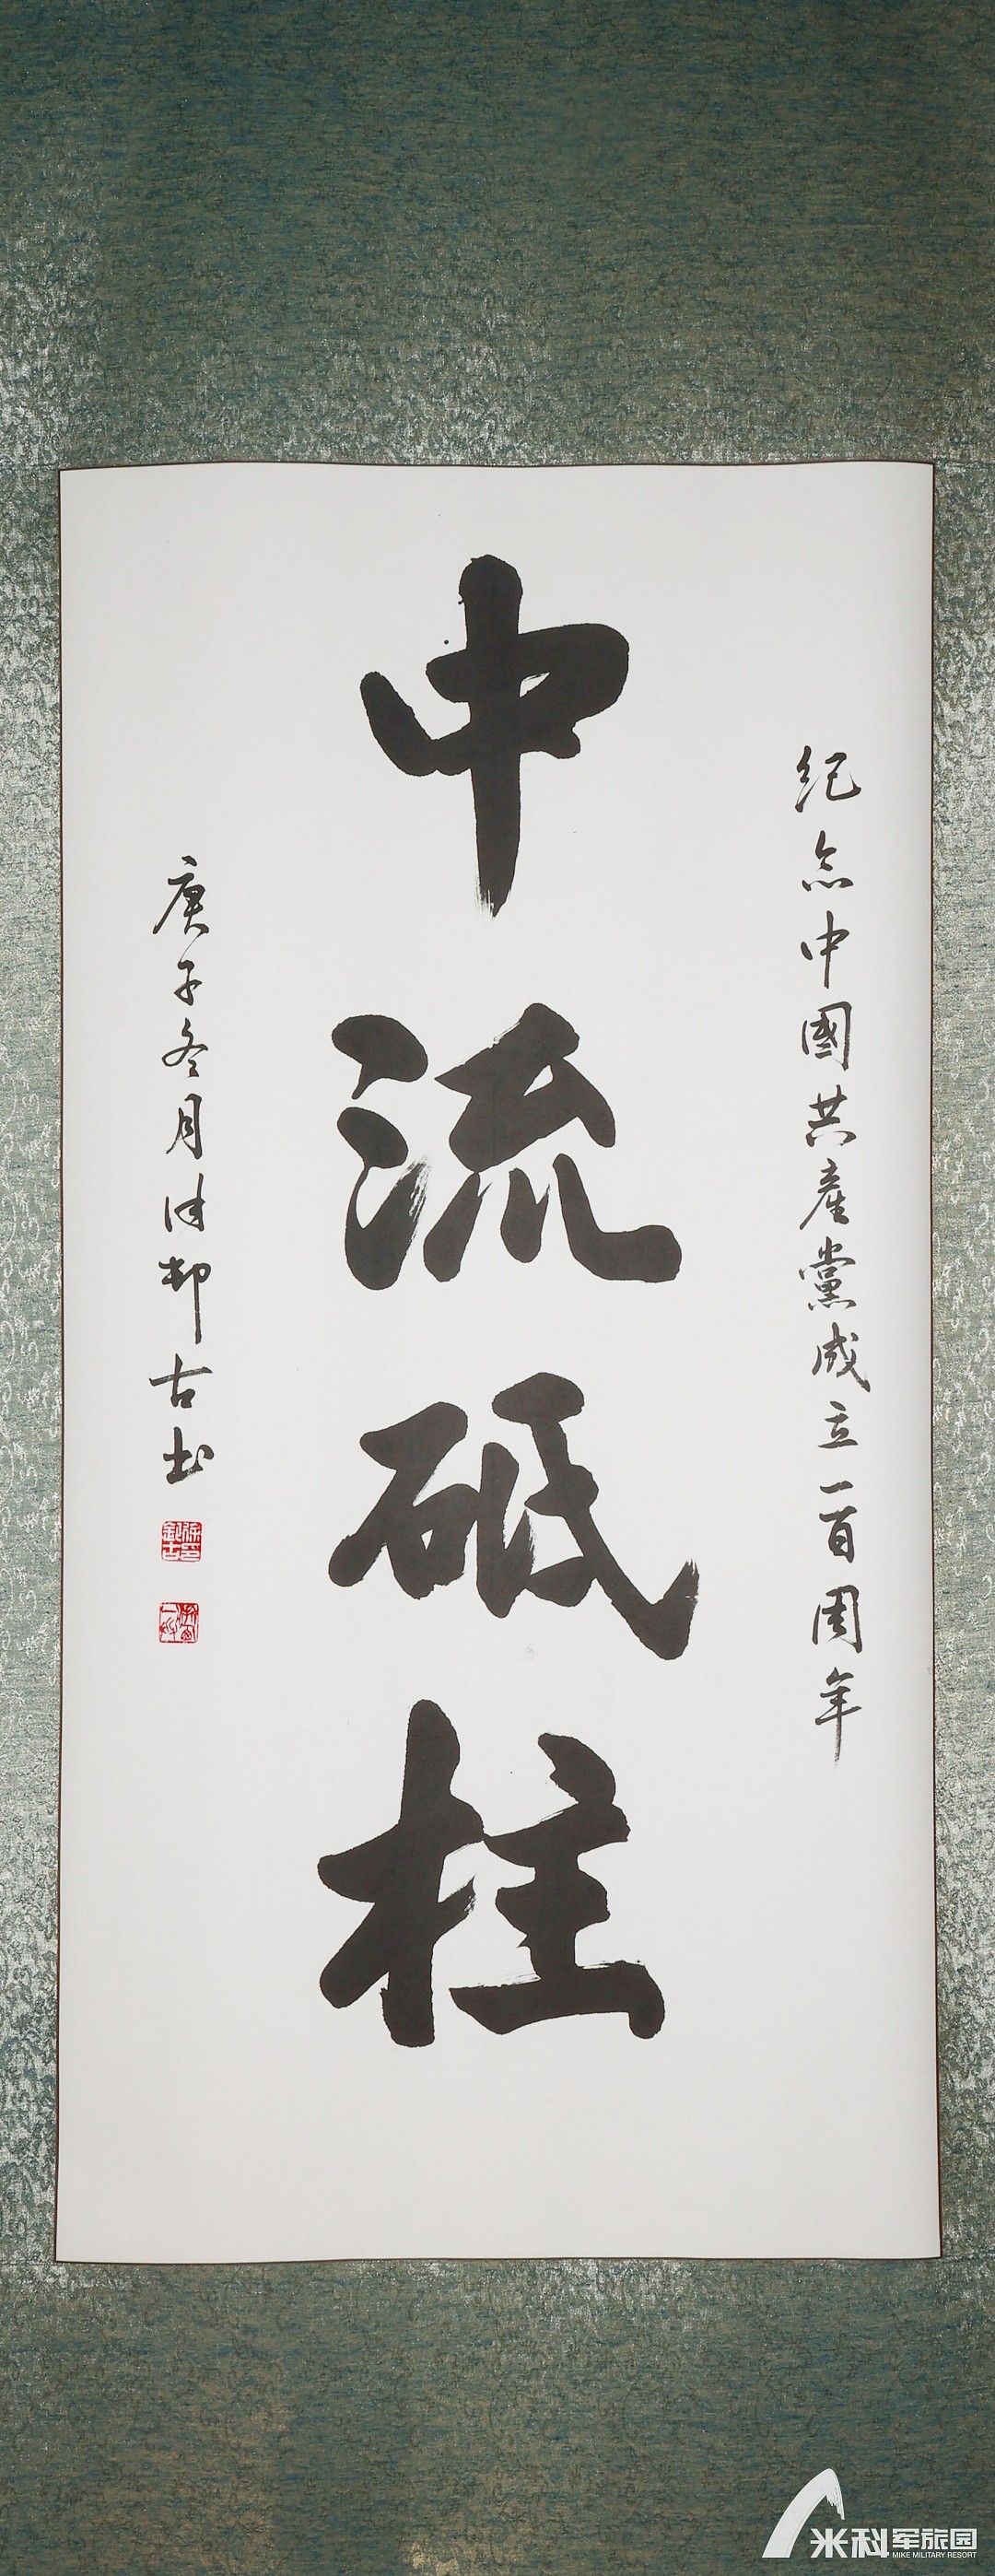 纪念中國共產黨成立一百周年
中流砥柱
庚子冬月 古书
米科军旅园
MIKE MILITARY RESORT